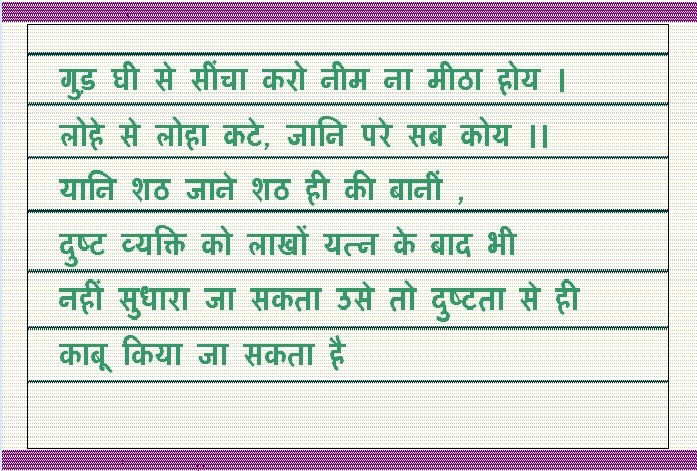 गुड़ घी से सींचा करो नीम ना मीठा होय ।
लोहे से लोहा कटे, जानि परे सब कोय ।।
यानि शठ जाने शठ ही की बानीं ,
दुष्ट व्यक्ति को लाखों यत्न के बाद भी
नहीं सुधारा जा सकता उसे तो दुष्टता से ही
काबू किया जा सकता है